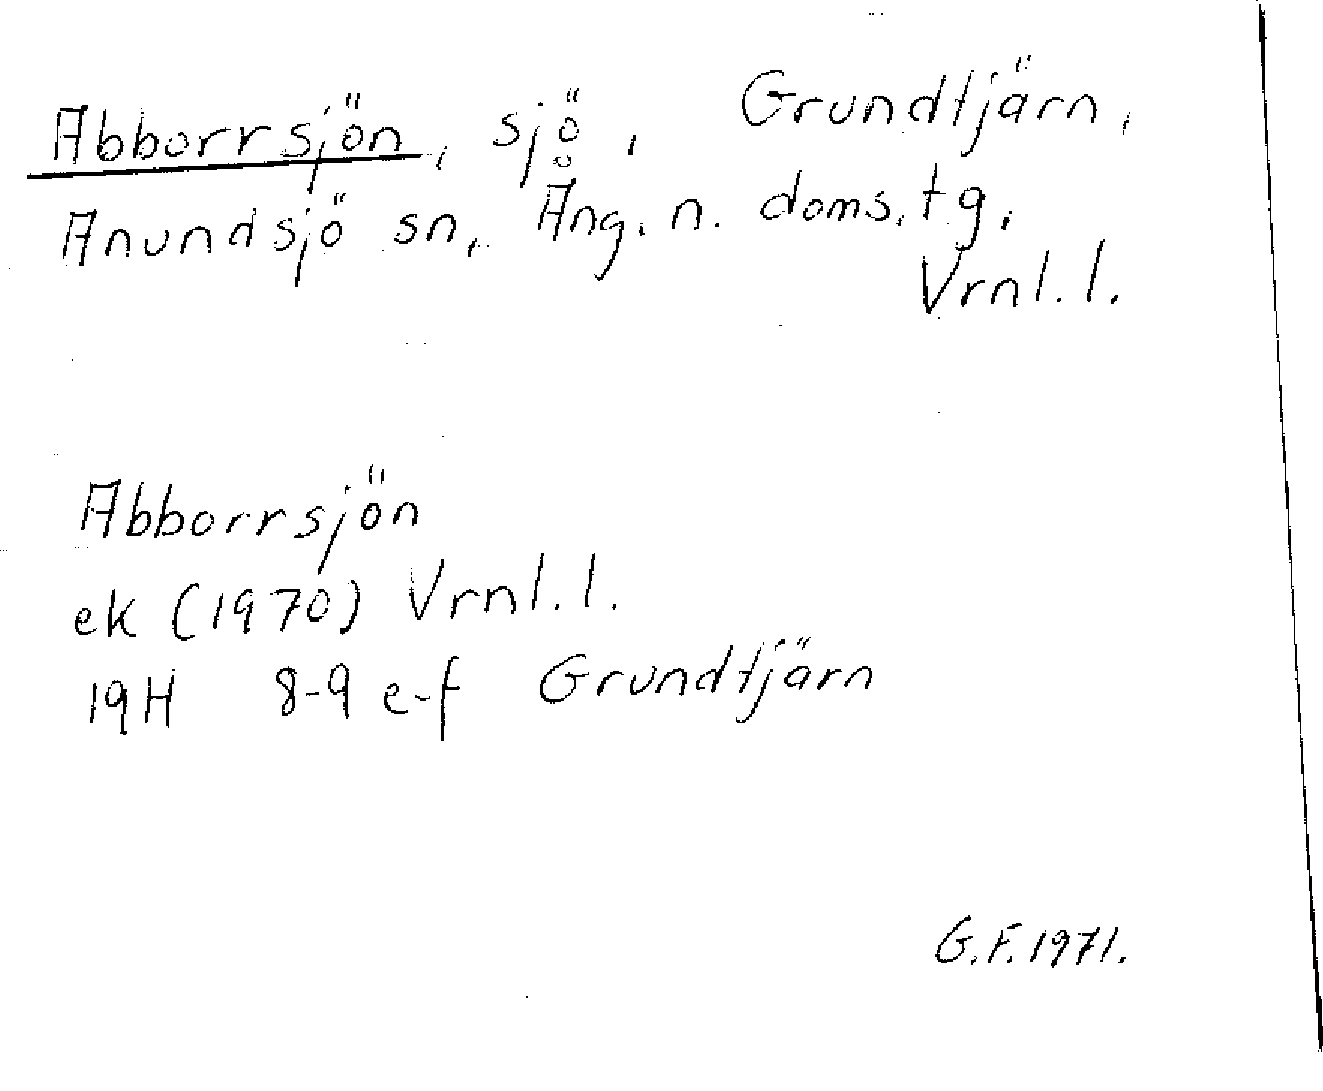 Abborrsjön, sjö, Grundtjärn,
Anundsjö sn, Ång. n. doms. tg,
Vrnl. l.
Abborrsjön
ek (1970) Vrnl. l.
19H 8-9 e-f Grundtjärn
G.F. 1971.